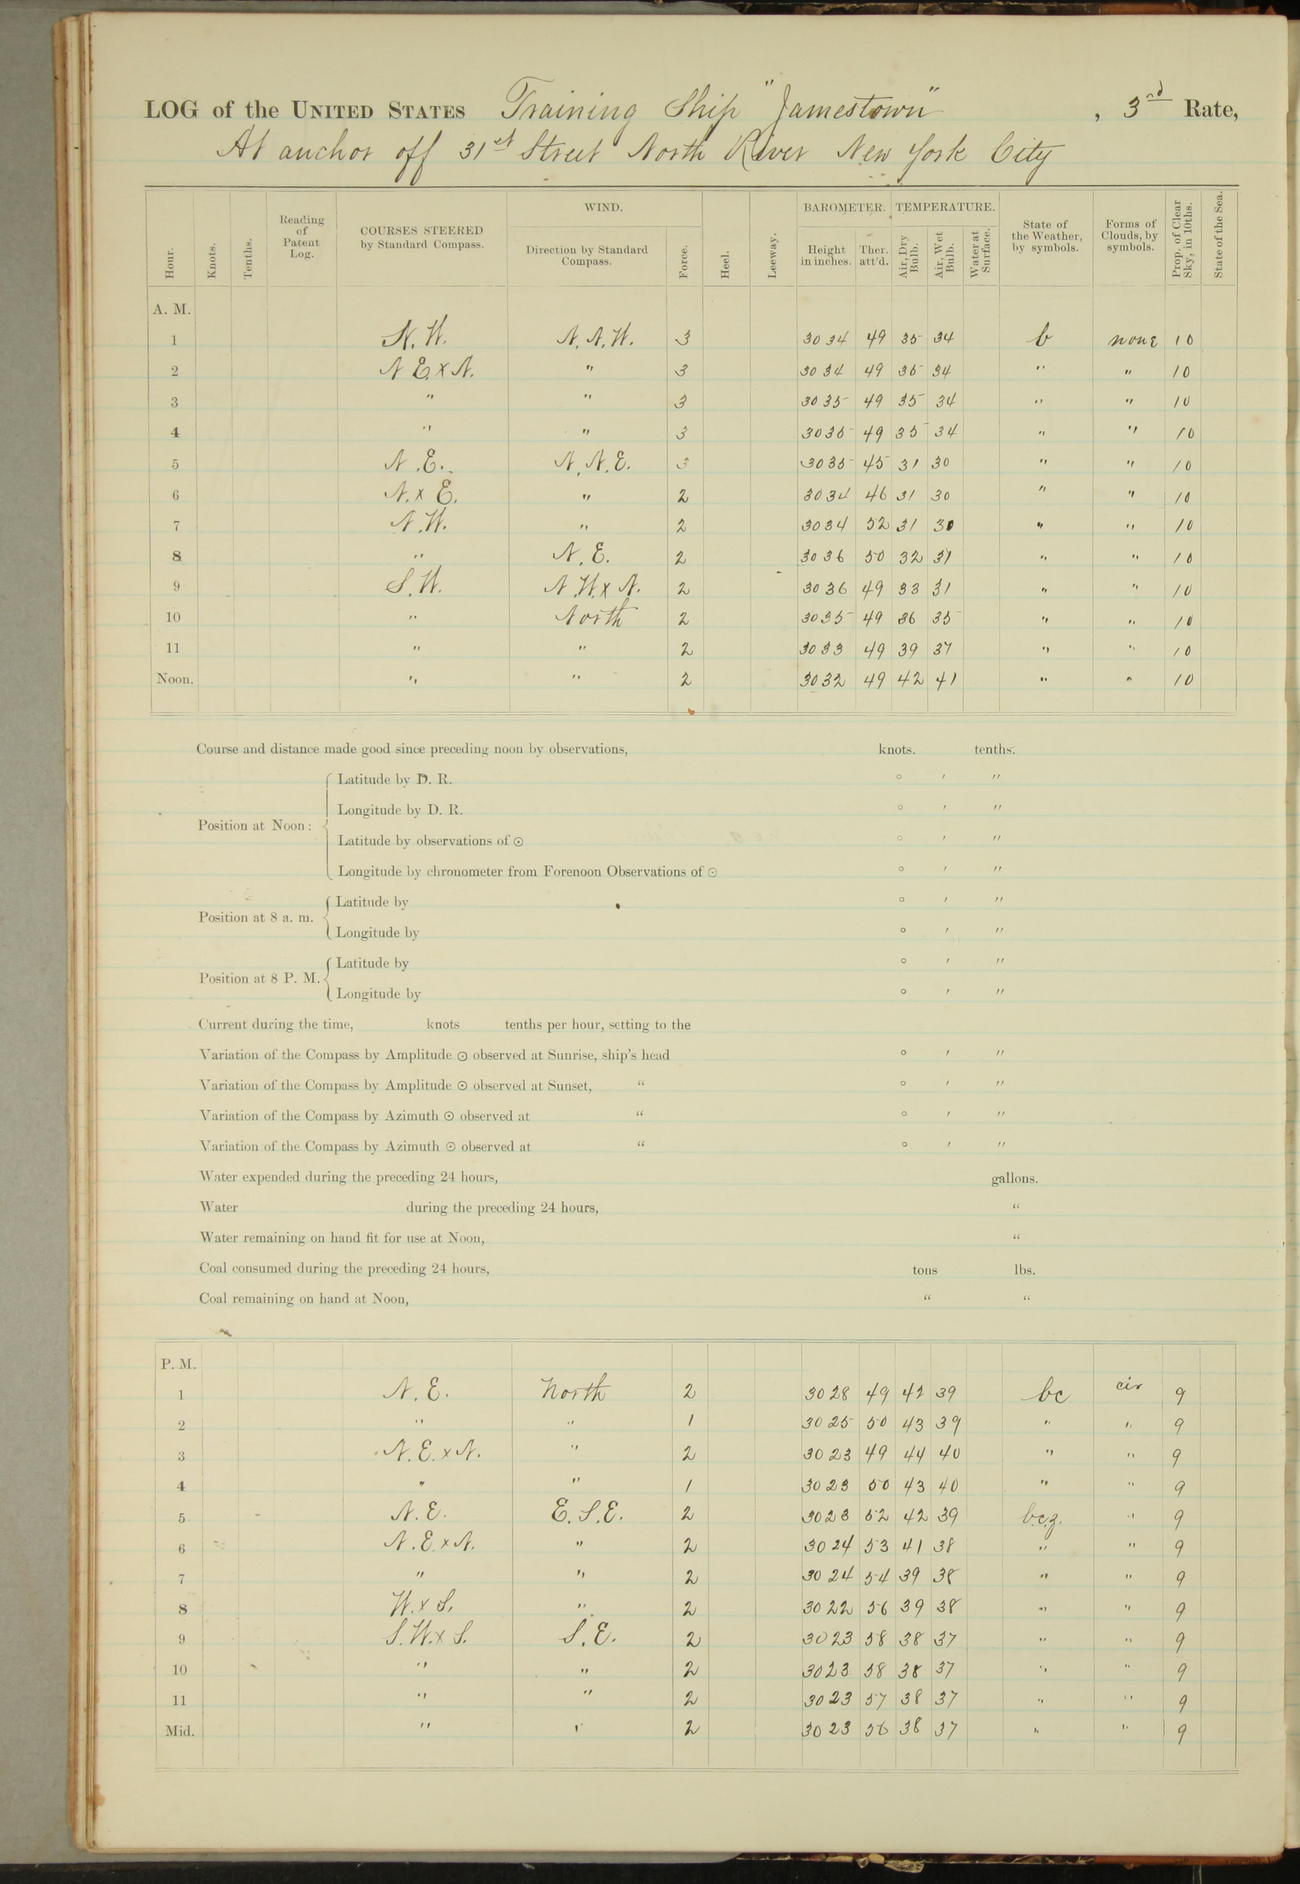 LOG of the UNITED STATES Training Ship "Jamestown", 3rd Rate,
At anchor off 31st Street North River New York City
Hour. Knots. Tenths. Reading of Patent Log. COURSES STEERED by Standard Compass. WIND. Direction by Standard Compass. Force. Heel. Leeway. BAROMETER. Height in inches. Ther. att'd. TEMPERATURE. Air, Dry Bulb. Air, Wet Bulb. Water at Surface. State of the Weather, by symbols. Forms of Clouds, by symbols. Prop. of Clear Sky, in 10ths. State of the Sea.
A. M.
1 N.W. N.N.W. 3 30 34 49 35 34 b none 10
2 N E. x N. " 3 30 34 49 35 34 " " 10
3 " " 3 30 35 49 35 34 " " 10
4 " " 3 30 35 49 35 34 " " 10
5 N.E. N.N.E. 3 30 35 45 31 30 " " 10
6 N. x E. " 2 30 34 46 31 30 " " 10
7 N.W. " 2 30 34 52 31 30 " " 10
8 " N.E. 2 30 36 50 32 31 " " 10
9 S.W. N.W. x N. 2 30 36 49 33 31 " " 10
10 " North 2 30 35 49 36 35 " " 10
11 " " 2 30 33 49 39 37 " " 10
Noon. " " 2 30 32 49 42 41 " " 10
Course and distance made good since preceding noon by observations, knots. tenths.
Position at Noon: Latitude by D. R. ° ′ ″
Longitude by D. R. ° ′ ″
Latitude by observations of ⊙ ° ′ ″
Longitude by chronometer from Forenoon Observations of ⊙ ° ′ ″
Position at 8 a. m. Latitude by ° ′ ″
Longitude by ° ′ ″
Position at 8 P. M. Latitude by ° ′ ″
Longitude by ° ′ ″
Current during the time, knots tenths per hour, setting to the
Variation of the Compass by Amplitude ⊙ observed at Sunrise, ship's head ° ′ ″
Variation of the Compass by Amplitude ⊙ observed at Sunset, " ° ′ ″
Variation of the Compass by Azimuth ⊙ observed at " ° ′ ″
Variation of the Compass by Azimuth ⊙ observed at " ° ′ ″
Water expended during the preceding 24 hours, gallons.
Water during the preceding 24 hours, "
Water remaining on hand fit for use at Noon, "
Coal consumed during the preceding 24 hours, tons lbs.
Coal remaining on hand at Noon, " "
P. M.
1 N.E. North 2 30 28 49 42 39 bc cir 9
2 " " 1 30 25 50 43 39 " " 9
3 N.E. x N. " 2 30 23 49 44 40 " " 9
4 " " 1 30 23 50 43 40 " " 9
5 N.E. E.S.E. 2 30 23 52 42 39 b.c.z. " 9
6 N.E. x N. " 2 30 24 53 41 38 " " 9
7 " " 2 30 24 54 39 38 " " 9
8 W. x S. " 2 30 22 56 39 38 " " 9
9 S.W. x S. S.E. 2 30 23 58 38 37 " " 9
10 " " 2 30 23 58 38 37 " " 9
11 " " 2 30 23 57 38 37 " " 9
Mid. " " 2 30 23 56 38 37 " " 9